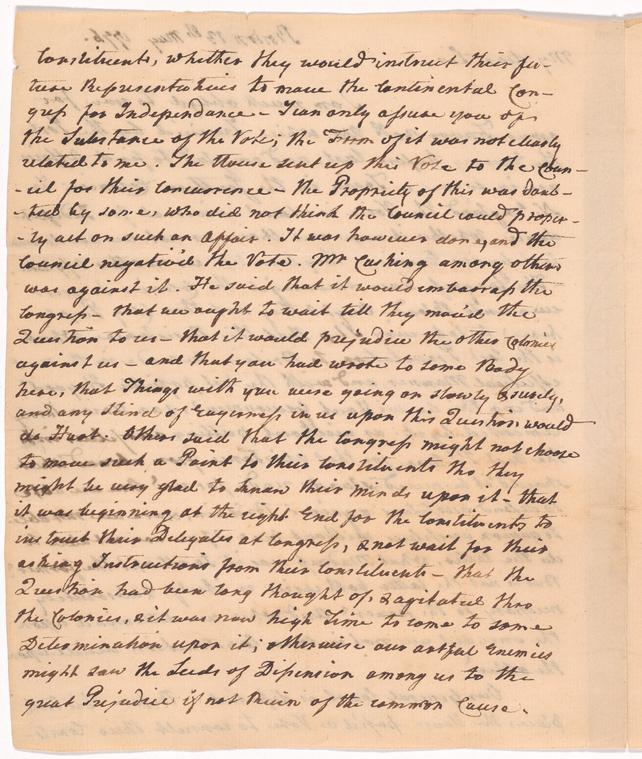 Constituents, whether they would instruct their fu-
ture Representatives to move the Continental Con-
gress for Independance - I can only assure you of
the Substance of the Vote; the Form of it was not clearly
related to me. The House sent up this Vote to the Coun-
-cil for their concurrence - the Propriety of this was doub-
-ted by some, who did not think the Council could proper-
-ly act on such an Affair. It was however done, and the
Council negativ'd the Vote. Mr Cushing among others
was against it. He said that it would imbarrass the
Congress - that we ought to wait till they mov'd the
Question to us - that it would prejudice the other Colonies
against us - and that you had wrote to some Body
here, that Things with you were going on slowly & surely,
and any Kind of Eagerness in us upon this Question would
do Hurt. Others said that the Congress might not choose
to move such a Point to their Constituents tho they
might be very glad to know their minds upon it - that
it was beginning at the right End for the Constituents to
instruct their Delegates at Congress, & not wait for their
asking Instructions from their Constituents - that the
Question had been long thought of & agitated thro
the Colonies, & it was now high Time to come to some
Determination upon it; otherwise our artful Enemies
might sow the Seeds of Dissension among us to the
great Prejudice if not Ruin of the common Cause.